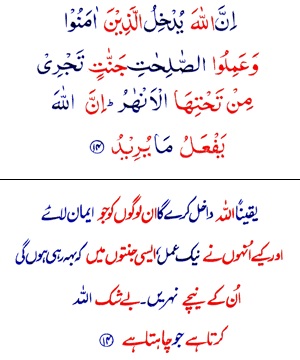 اِنَّ اللّٰهَ يُدْخِلُ الَّذِيْنَ اٰمَنُوْا
وَعَمِلُوا الصّٰلِحٰتِ جَنّٰتٍ تَجْرِىْ
مِنْ تَحْتِهَا الْاَنْهٰرُ ؕ اِنَّ اللّٰهَ
يَفْعَلُ مَا يُرِيْدُ ﴿۱۴﴾
یقیناً اللہ داخل کرے گا ان لوگوں کو جو ایمان لائے
اور کیے اُنہوں نے نیک عمل، ایسی جنتوں میں کہ بہہ رہی ہوں گی
اُن کے نیچے نہریں۔ بے شک اللہ
کرتا ہے جو چاہتا ہے ﴿۱۴﴾